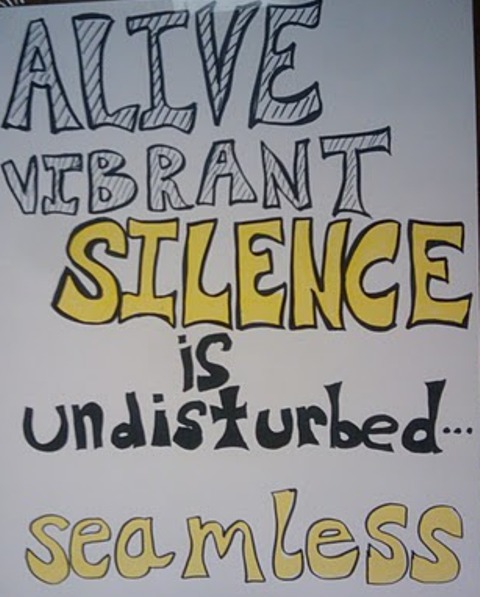 ALIVE
VIBRANT
SILENCE
is
undisturbed...
seamless